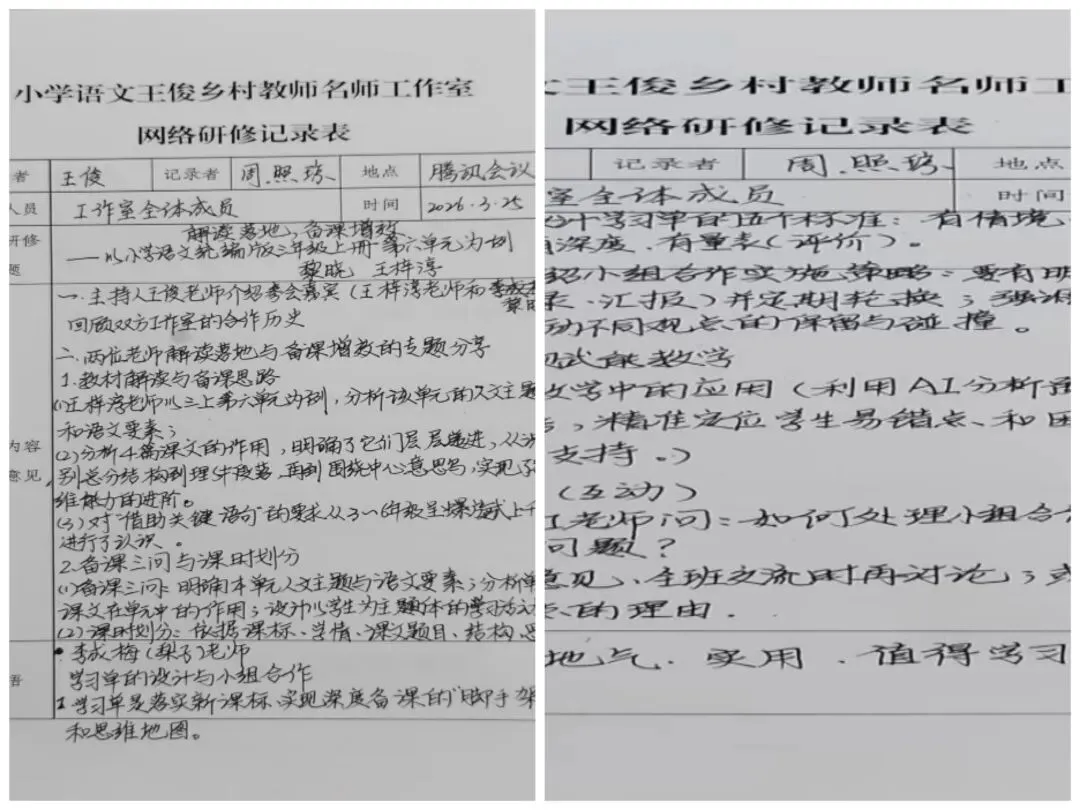 小学语文王俊乡村教师名师工作室
网络研修记录表
者 王俊 记录者 周照琼 地点 腾讯会议
人员 工作室全体成员 时间 2026.3.25
研修 解读落地,备课增效
题 ——以小学语文统编版三年级上册第六单元为例
黎晓 王梓淳
一.主持人王俊老师介绍参会嘉宾(王梓淳老师和
回顾双方工作室的合作历史
二.两位老师解读落地与备课增效的专题分享
1.教材解读与备课思路
(1)王梓淳老师以三上第六单元为例,分析该单元的人文主题
和语文要素;
内容 (2)分析4篇课文的作用,明确了它们层层递进,从
意见 别总分结构到理解段落,再到围绕中心意思写,实现了
维能力的进阶。
(3)对“借助关键语句”的要求从3~6年级呈螺旋式上升
进行了认识。
2.备课三问与课时划分
(1)备课三问:明确本单元人文主题与语文要素;分析单
课文在单元中的作用;设计以学生为主题体的学习活
(2)课时划分:依据课标、学情、课文题目、结构、思
•李成梅(梨子)老师
学习单的设计与小组合作
1.学习单是落实新课标、实现深度备课的“脚手架
和思维地图。
文王俊乡村教师名师工
网络研修记录表
记录者 周照琼 地点
室全体成员 时间
设计学习单的五个标准:有情境
有深度、有量表(评价)。
绍小组合作实施策略:要有明
录、汇报)并定期轮换;强调
动不同观点的保留与碰撞。
赋能教学
教学中的应用(利用AI分析
,精准定位学生易错点、和困
支持。)
(互动)
老师问:如何处理小组合
问题?
意见、全班交流时再讨论;或
的理由.
地气.实用.值得学习